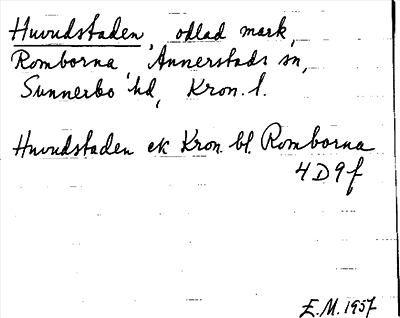 Huvudstaden, odlad mark,
Romborna Annerstads sn,
Sunnerbo hd, Kron. l.
Huvudstaden ek Kron. bl. Romborna
4D9f
E.M. 1957